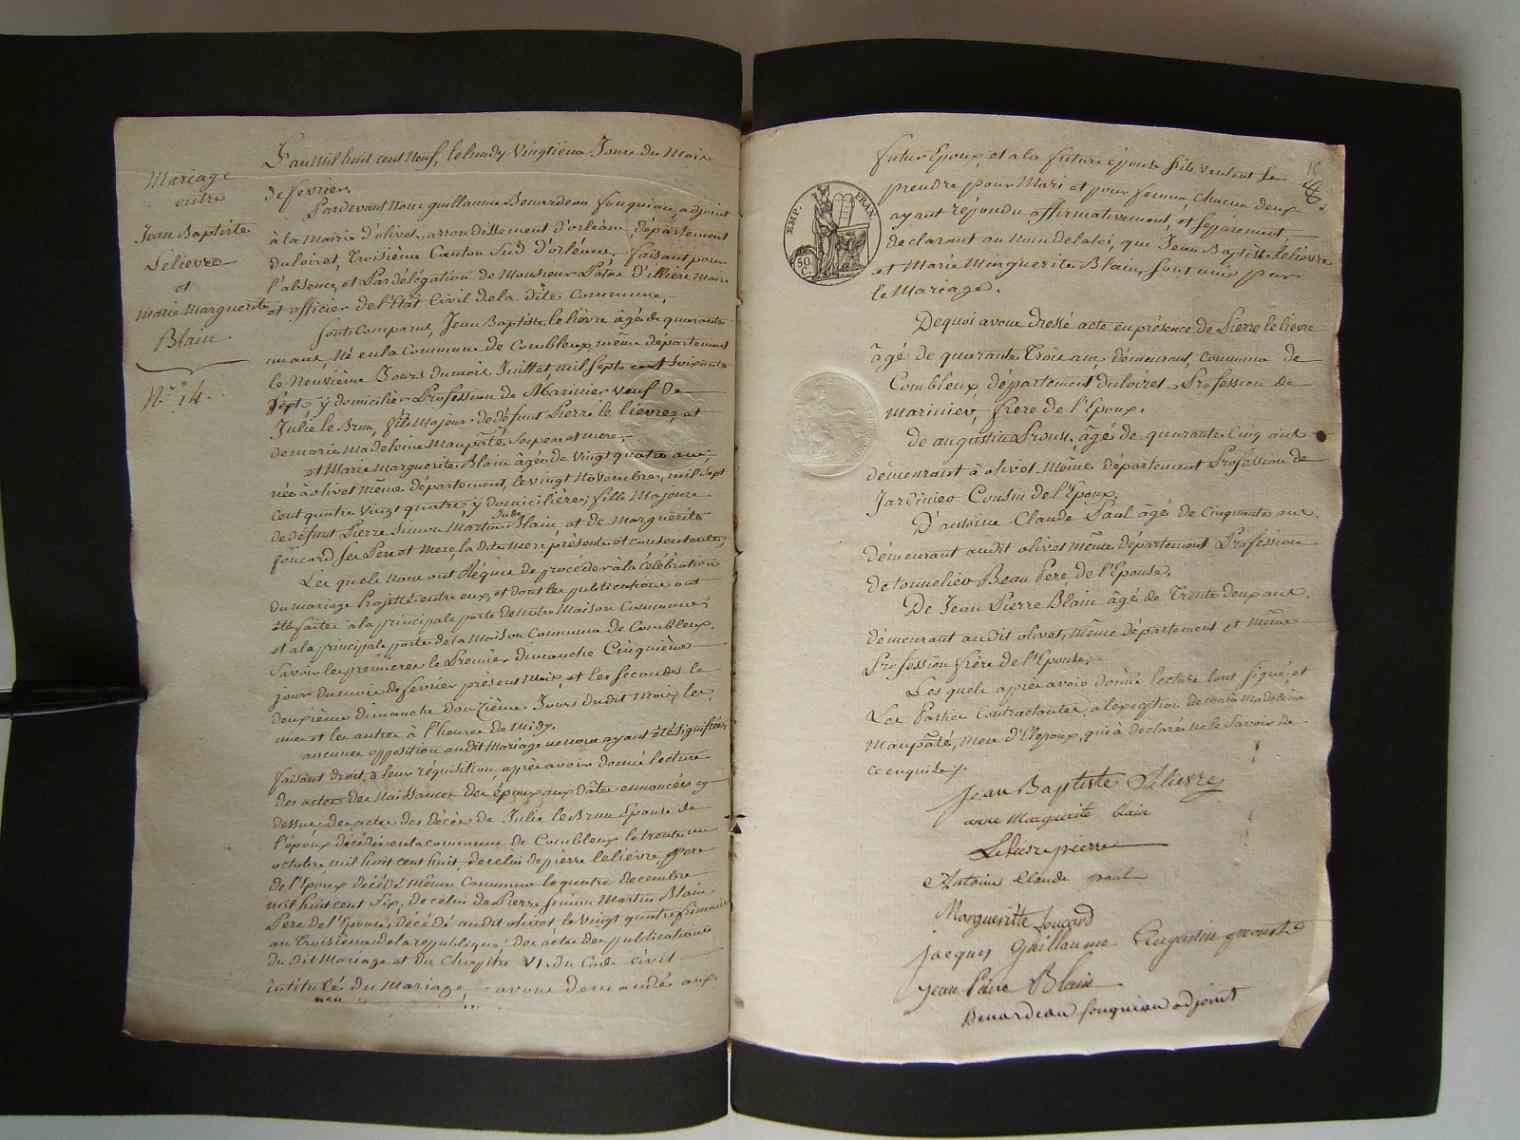 Mariage
entre
Jean Baptiste
Lelievre
et
Marie Marguerite
Blain
N.° 14.
L'an mil huit cent neuf, le lundy vingtieme Jour du Mois
de fevrier
Pardevant Nous guillaume Benardeau fouqueau, adjoint
à la Mairie d'olivet, arrondissement d'orléans, département
du loiret, troisième Canton Sud d'orléans, faisant pour
l'absence, et Par délégation de Monsieur D'illiers Maire
et officier de l'Etat Civil de la dite Commune,
sont Comparus, Jean Baptiste le lièvre âgé de quarante
un ans, Né en la Commune de Combleux même département
le Neuvième Jour du mois Juillet, mil sept cent soixante
sept y domicilié Profession de Marinier veuf De
Julie le Brun, fils Majeur de défunt Pierre le lievre, et
de marie madeleine Maupâté, ses pere et mere,
et Marie Marguerite Blain âgée de vingt quatre ans,
née à olivet même département, le vingt Novembre, mil sept
cent quatre vingt quatre y domiciliée, fille Majeure
de défunt Pierre Simon Martin Blain et de Marguerite
foucard ses Pere et Mere la dite mere présente et consentante,
Les quels nous ont Réquis de procéder à la Célébration
du mariage Projetté entre eux, et dont les publications ont
été faites à la principale porte de notre Maison Commune,
et à la principale porte de la Maison Commune de Combleux,
Savoir les premieres le Premier dimanche Cinquième
jour du mois de fevrier présent Mois, et les secondes le
deuxième dimanche douzième Jours dudit Mois, les
unes et les autres à l'heure de midy,
aucune opposition au dit Mariage ne nous ayant été signifiée,
faisant droit à leur réquisition, après avoir donné lecture
des actes de Naissances des époux aux dates énoncées cy
dessus des actes des décès de Julie le Brun Epouse de
l'époux décédée en la commune de Combleux le trente un
octobre mil huit cent huit, de celui de pierre lelièvre, pere
de l'Epoux décédé même Commune le quatre decembre
mil huit cent six, de celui de Pierre Simon Martin Blain
Pere de l'Epouse, décédé au dit olivet, le vingt quatre frimaire
an troisième de la république, des actes des publications
du dit Mariage et du Chapitre VI. du Code civil
intitulés du Mariage, avons demandés aux
futur Epoux, et a la future épouse s'ils veulent se
prendre pour Mari et pour femme, chacun deux
ayant répondu affirmativement, et séparement
déclarant au Nom de la loi, que Jean Baptiste lelièvre
et Marie Marguerite Blain, sont unis par
le Mariage.
EMP. FRAN.
50
C.
De quoi avons dressé acte en présence de Pierre le lievre
âgé de quarante Trois ans, démeurant, commune de
Combleux, département du loiret, Profession de
marinier, frere de l'Epoux.
de augustin Proust, âgé de quarante Cinq ans
démeurant à olivet même département Profession de
Jardinier Cousin de l'Epoux,
D'antoine Claude Paul âgé de Cinquante ans,
démeurant audit olivet même département Profession
de tonnelier Beau Pere, de l'Epouse,
De Jean Pierre Blain âgé de Trente deux ans,
démeurant audit olivet, même département et même
Profession frère de l'Epouse,
Les quels après avoir donné lecture l'ont signé, et
Les Parties Contractantes, a l'exception de marie Madeleine
Maupâté, mere d'l'epoux, qui à declaré ne le Savoir de
ce enquise /.
Jean Baptiste Lelievre
marie Marguerite blain
Lelievre pierre
Antoine Claude paul
Margueritte foucard
jacques Guillaume Augustin prouste
jean Piere Blain
Benardeau fouqueau adjoint